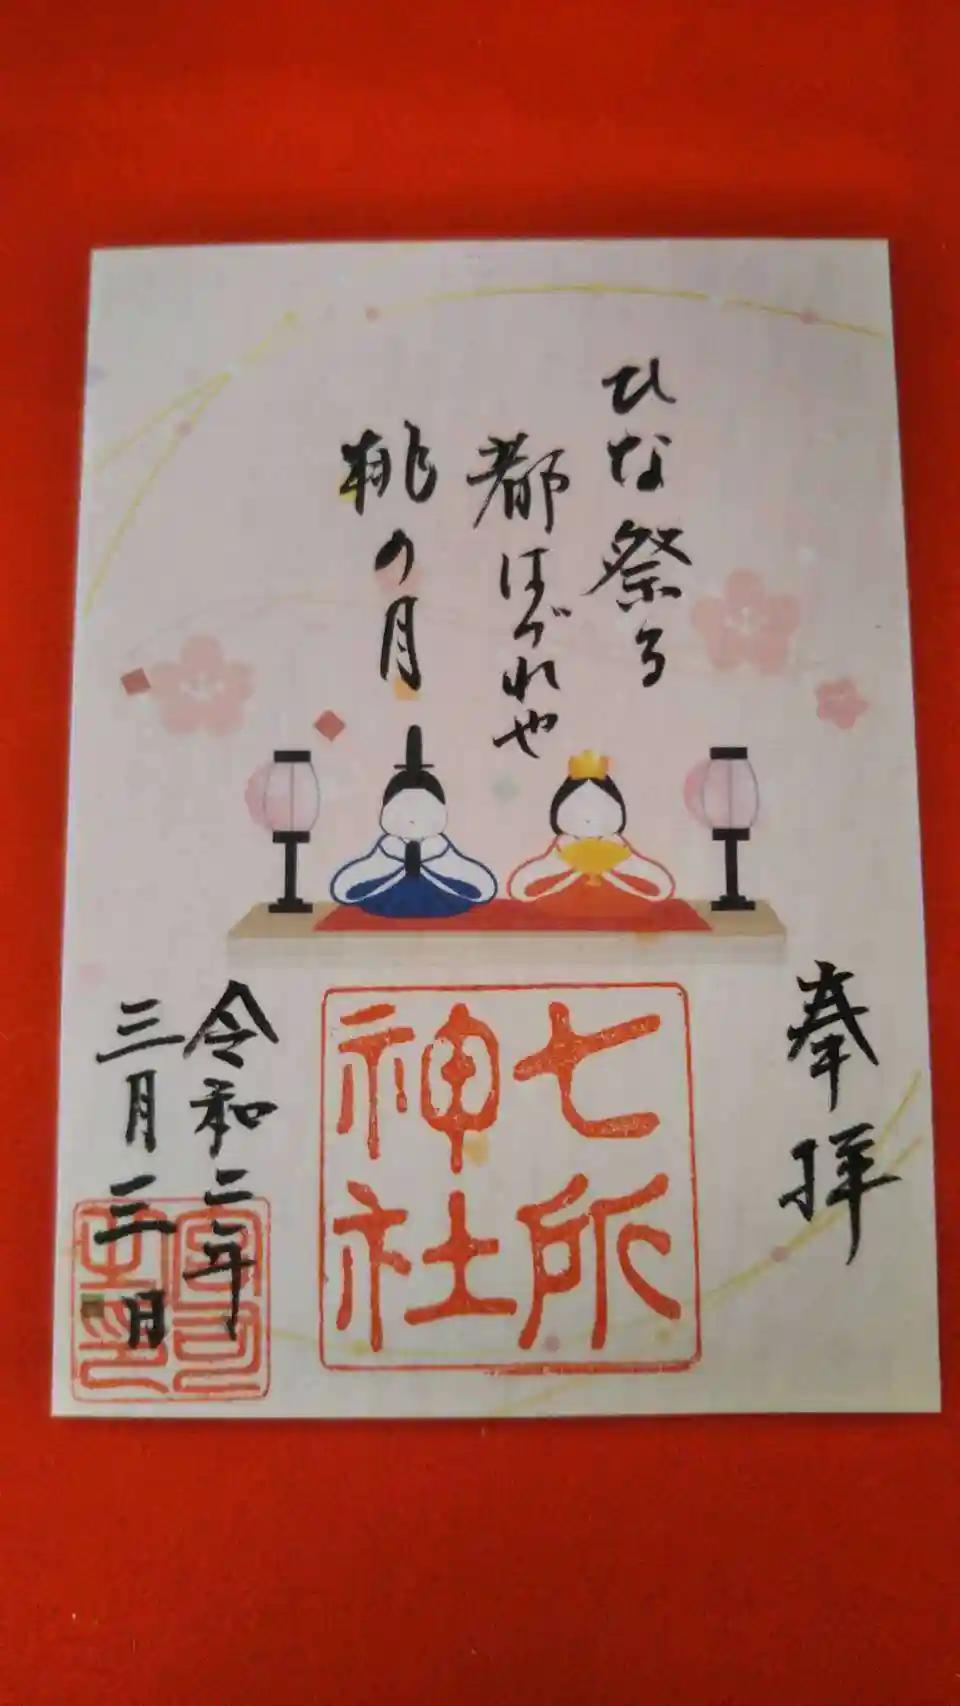 ひな祭る
都はづれや
桃の月
奉拝
七所
神社
令和二年
三月三日
宮司
之印